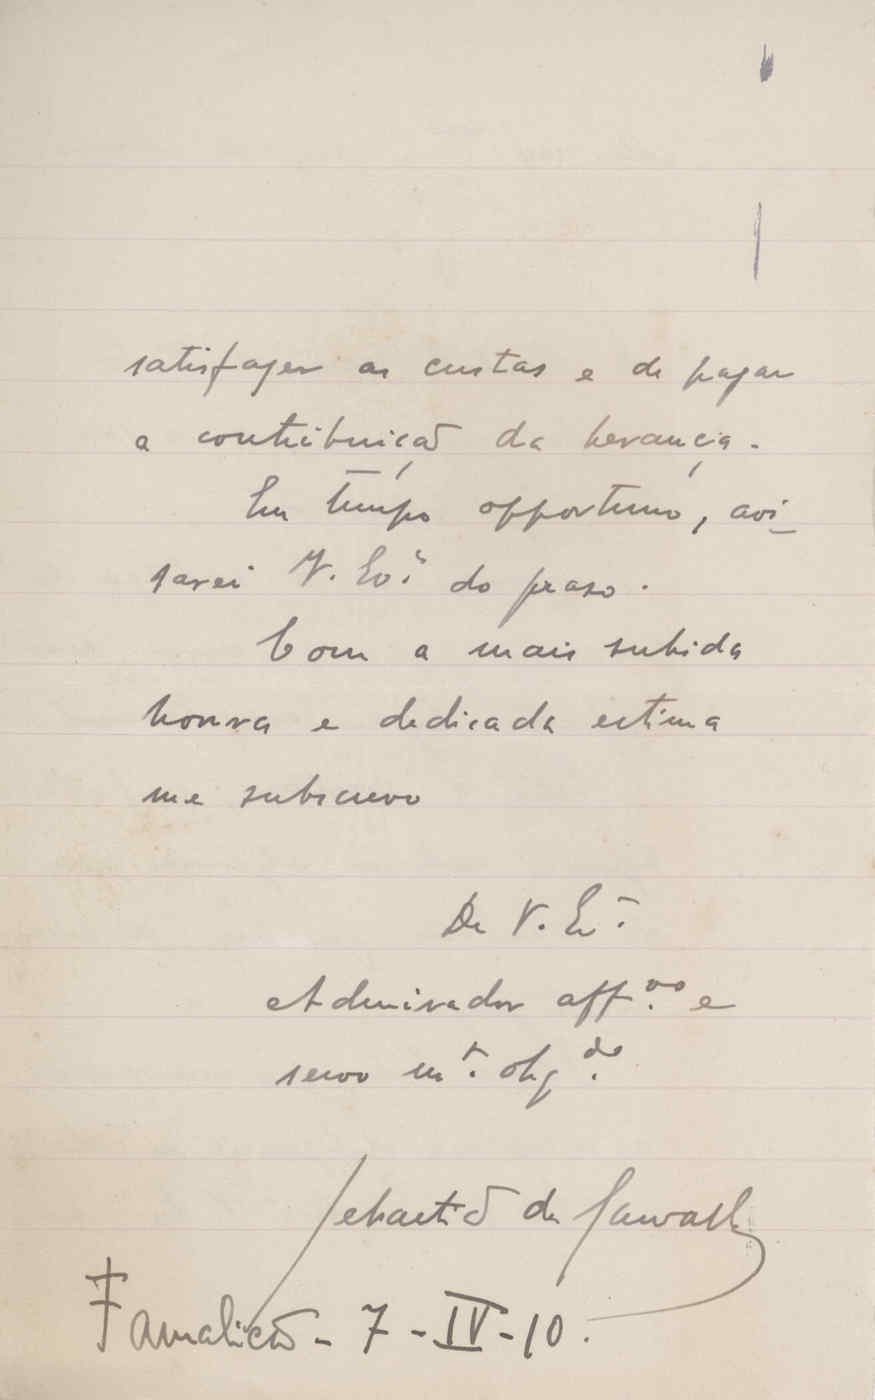 satisfazer as custas e de pagar
a contribuição da herança.
Em tempo opportuno, avi-
sarei V. Ex.ª do praso.
Com a mais subida
honra e dedicada estima
me subscrevo
De V. Ex.ª
Admirador aff.mo e
servo m.to obg.do
Sebastião de Carvalho
Famalicão - 7 - IV - 10.